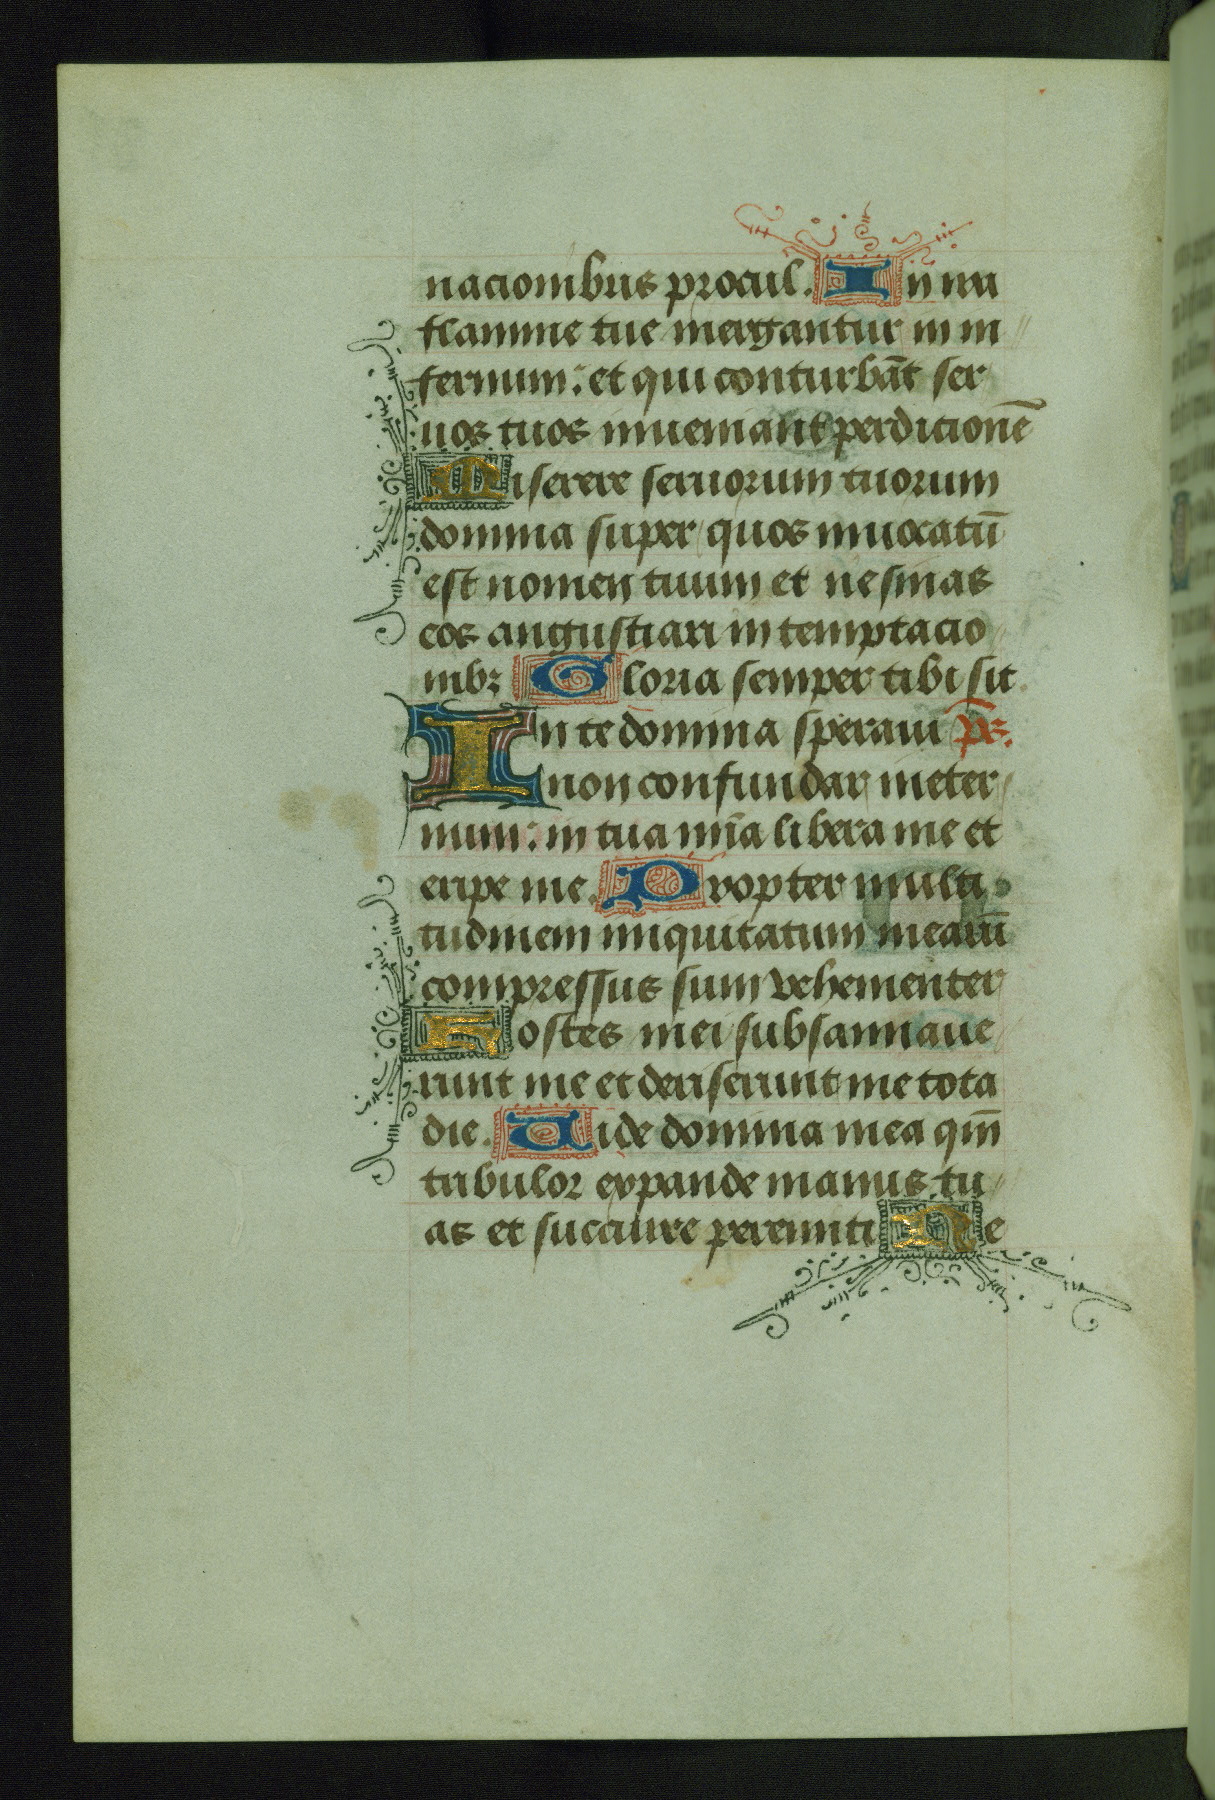 nacionibus procul. In nu
flamme tue mergantur in in
fernum: et qui conturbāt ser
uos tuos inueniant perdicionē
Miserere seruorum tuorum
domina super quos inuocatū
est nomen tuum et ne sinas
eos angustiari in temptacio
nibꝫ Gloria semper tibi sit
In te domina speraui p̄s.
non confundar in eter
num: in tua mīa libera me et
eripe me. Propter multi
tudinem iniquitatum mearū
compressus sum vehementer
Hostes mei subsannaue
runt me et deriserunt me tota
die. Uide domina mea qm̄
tribulor expande manus tu
as et succurre pereunti Ne